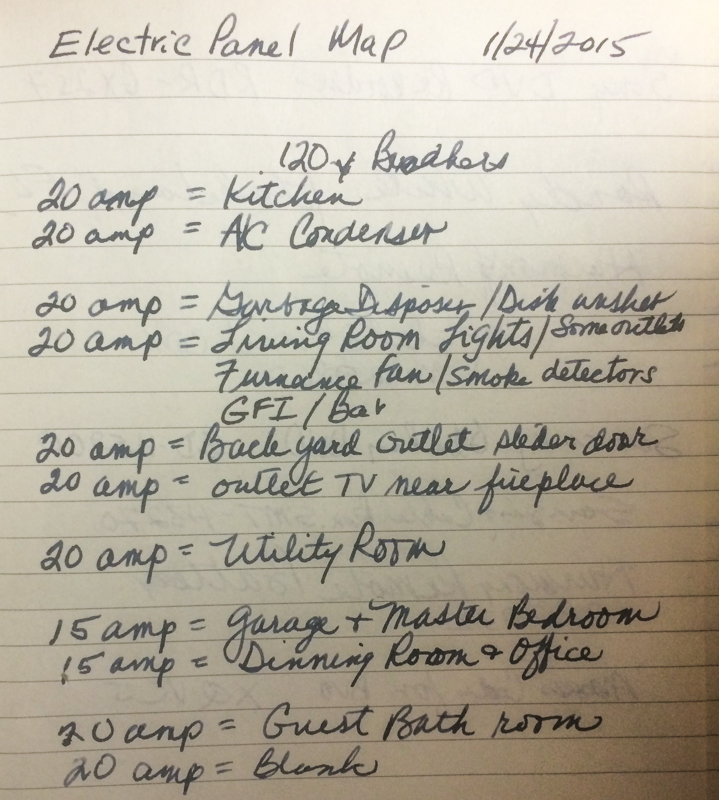 Electric Panel Map 1/24/2015
120 v Breakers
20 amp = Kitchen
20 amp = A/C Condenser
20 amp = Garbage Disposer / Dish washer
20 amp = Living Room Lights / Some outlets
Furnance fan / smoke detectors
GFI / Bar
20 amp = Back yard outlet slider door
20 amp = outlet TV near fireplace
20 amp = Utility Room
15 amp = Garage + Master Bedroom
15 amp = Dinning Room & Office
20 amp = Guest Bath room
20 amp = blank